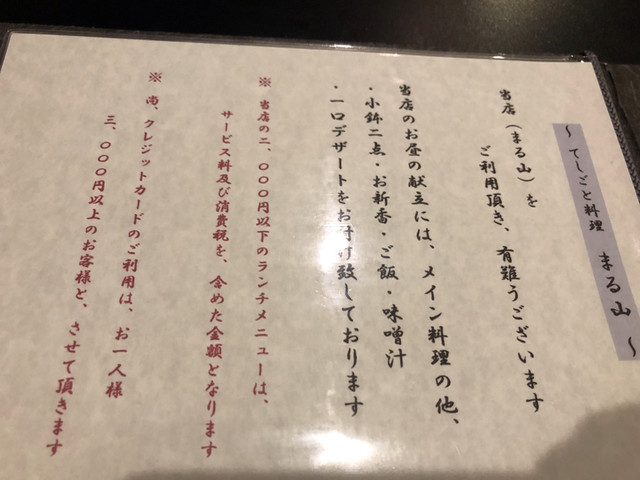 ～ てしごと料理 まる山 ～
当店（まる山）を
ご利用頂き、有難うございます
当店のお昼の献立には、メイン料理の他、
・小鉢二点・お新香・ご飯・味噌汁
・一口デザートをお付け致しております
※ 当店の二、〇〇〇円以下のランチメニューは、
サービス料及び消費税を、含めた金額となります
※ 尚、クレジットカードのご利用は、お一人様
三、〇〇〇円以上のお客様と、させて頂きます